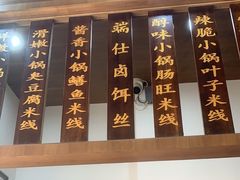 辣脆小锅叶子米线
醇味小锅肠旺米线
瑞仕卤饵丝
酱香小锅鳝鱼米线
滑嫩小锅臭豆腐米线
小锅米线